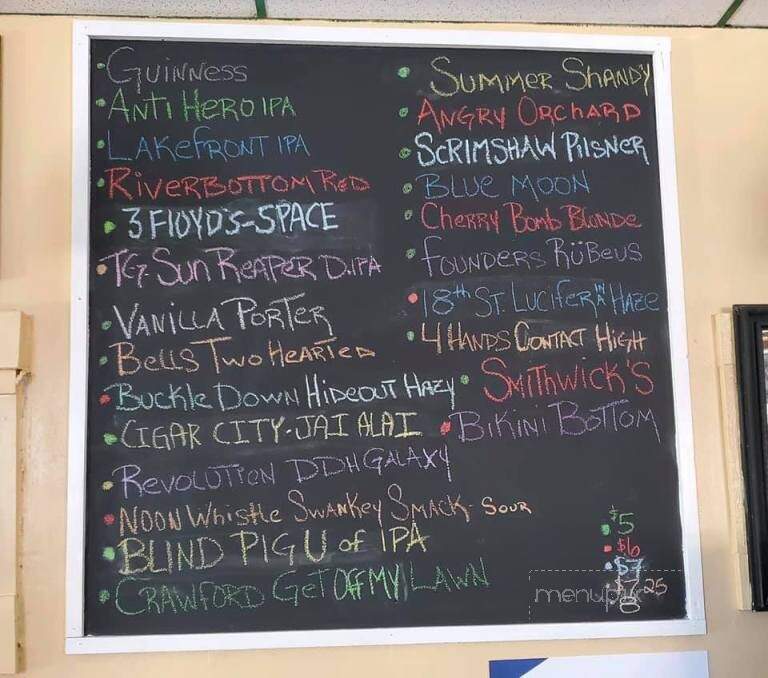 Guinness
Anti Hero IPA
Lakefront IPA
RiverBottom Red
3 Floyd's-Space
TG-Sun Reaper D.IPA
Vanilla Porter
Bells Two Hearted
Buckle Down Hideout Hazy
Cigar City-Jai Alai
Revolution DDH Galaxy
Noon Whistle Swankey Smack-Sour
Blind Pig U of IPA
Crawford Get Off My Lawn
Summer Shandy
Angry Orchard
Scrimshaw Pilsner
Blue Moon
Cherry Bomb Blonde
Founders Rübeus
18th St. Lucifer in Haze
4 Hands Contact High
Smithwick's
Bikini Bottom
$5
$6
$7
$7.25
8